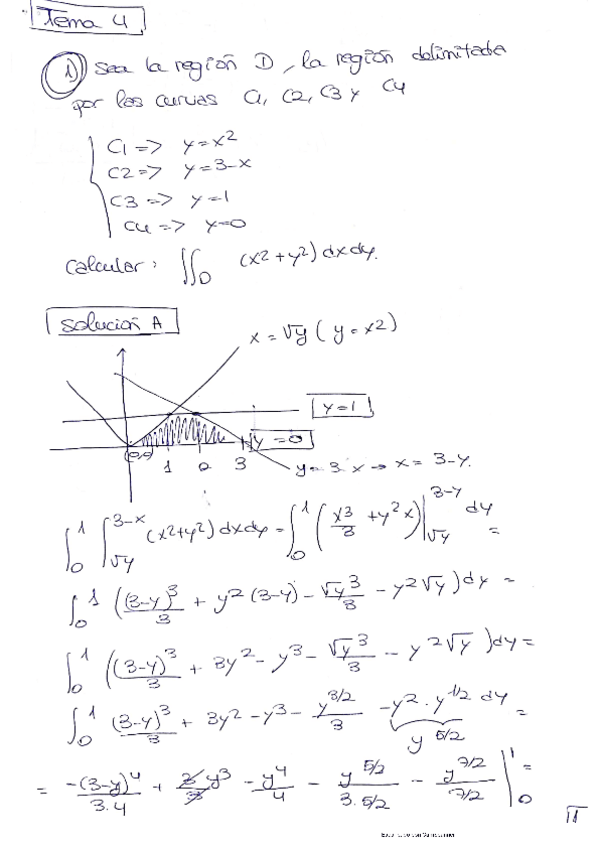 Tema 4
1) Sea la región D, la región delimitada
por las curvas C1, C2, C3 y C4
C1 => y=x²
C2 => y=3-x
C3 => y=1
C4 => y=0
Calcular: ∬_D (x²+y²) dx dy.
Solución A
x = √y ( y=x²)
y=1
y=0
(0,0) 1 2 3
y=3-x → x = 3-y.
∫₀¹ ∫_{√y}^{3-x} (x²+y²) dx dy = ∫₀¹ (x³/3 + y²x) |_{√y}^{3-y} dy =
∫₀¹ ((3-y)³/3 + y²(3-y) - √y³/3 - y²√y ) dy =
∫₀¹ ((3-y)³/3 + 3y² - y³ - √y³/3 - y²√y ) dy =
∫₀¹ (3-y)³/3 + 3y² - y³ - y^{3/2}/3 - y² · y^{1/2} dy =
y^{5/2}
= -(3-y)⁴/3·4 + 3/3 y³ - y⁴/4 - y^{5/2}/3·5/2 - y^{7/2}/7/2 |₀¹ =